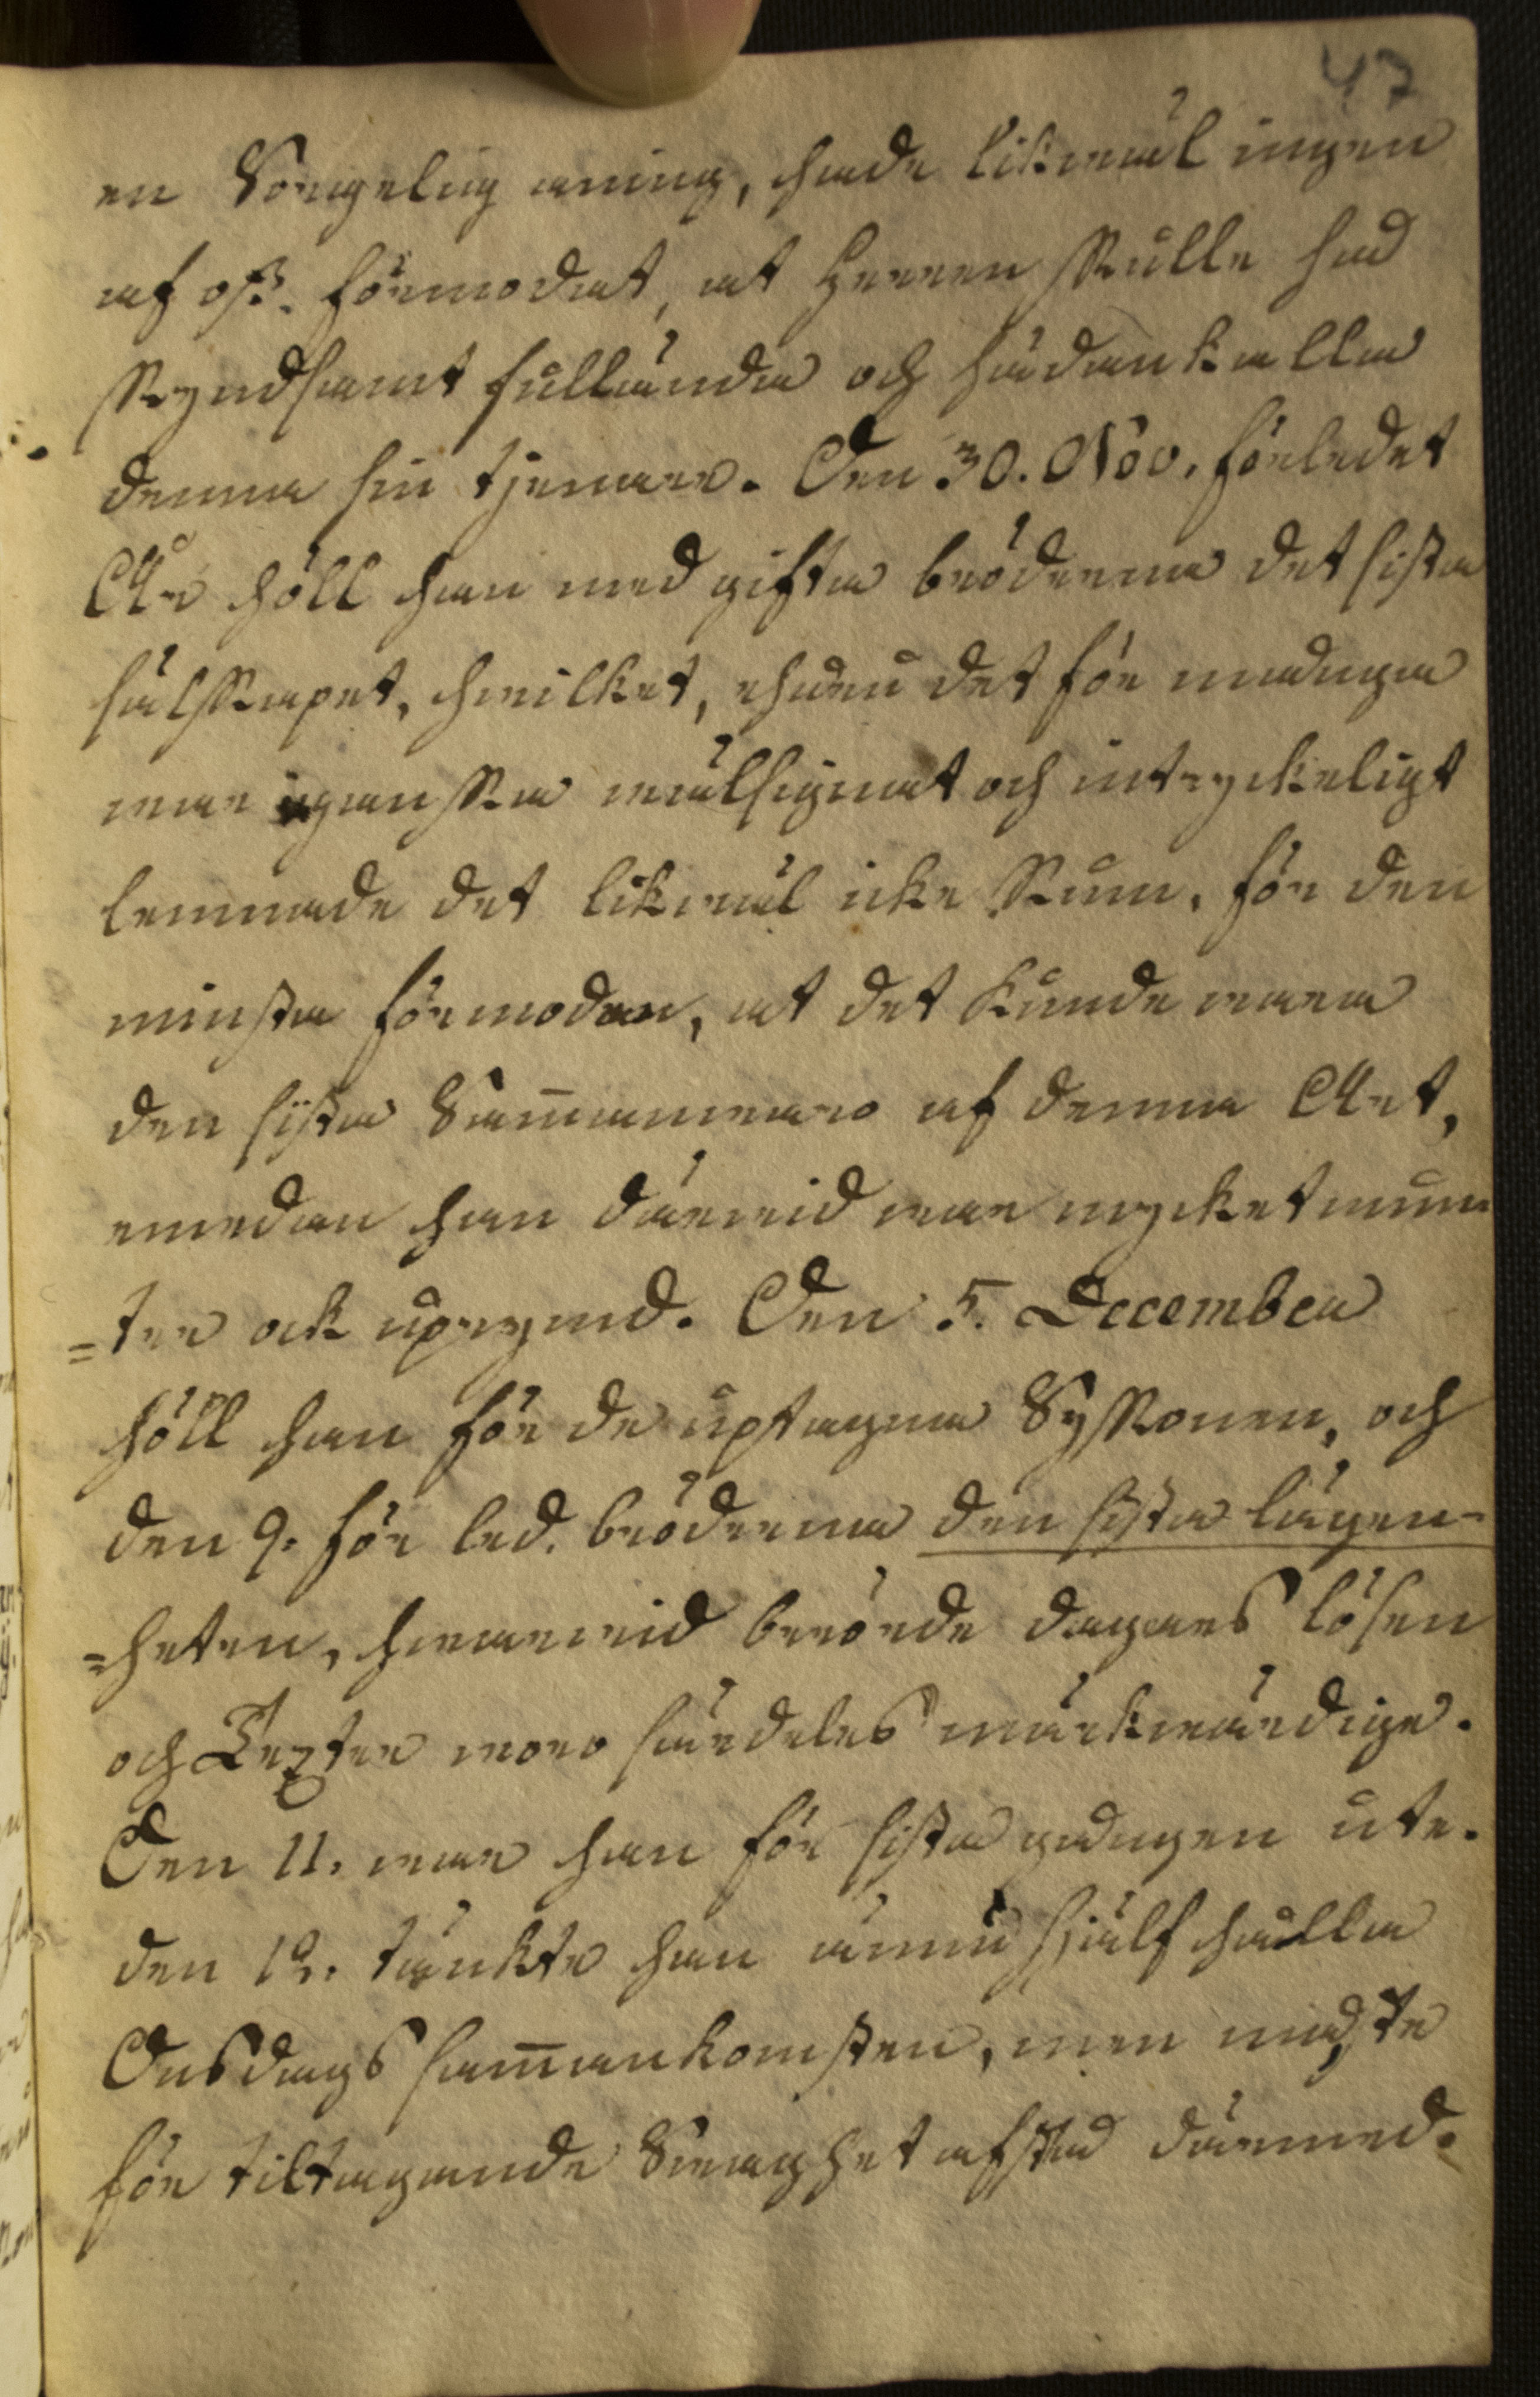 47
en Sorgelig aning, hade likwäl ingen
af oß förmodat, at Herren skulle så
skyndsamt fullända och hädankalla
denna sin tjenare. Den 30. Nov. förledet
År höll han med gifta bröderna det sista
sälskapet, hwilket, ehuru det för många
war ganska wälsignat och intryckeligt
lemnade det likwäl icke Rum, för den
minsta förmodan, at det kunde wara
den sista Sam̄anwaro af denna Art,
emedan han därwid war mycket mun
=ter ock uprymd. Den 5. December
höll han för de uptagna Syskonen, och
den 9. för led. bröderna den sista lägen-
=heten, hwarwid berörde dagars lösen
och Texter woro särdeles märkwärdige.
Den 11. war han för sista gången ute.
den 12. tänkte han ännu sjelf hålla
Onsdags sam̄ankomsten, men måste
för tiltagande Swaghet afstå därmed.